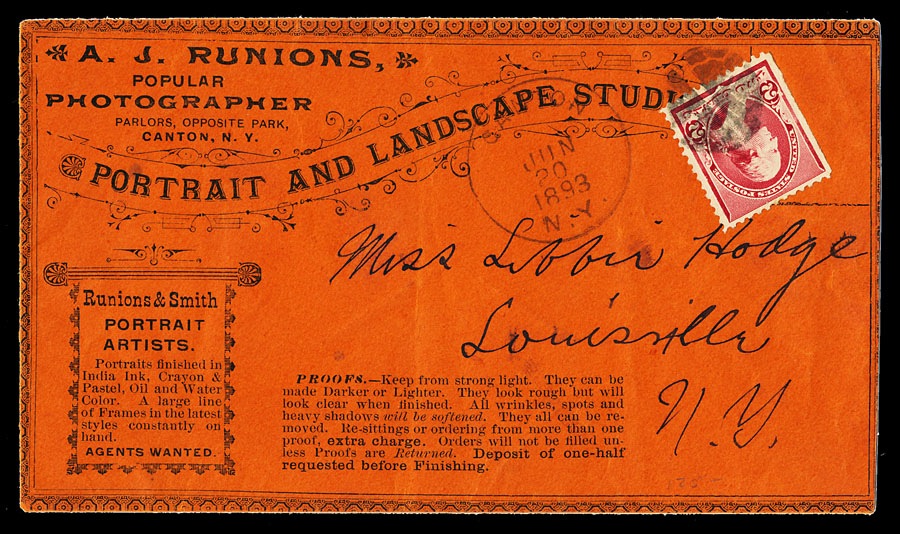 A. J. RUNIONS,
POPULAR
PHOTOGRAPHER
PARLORS, OPPOSITE PARK,
CANTON, N. Y.
PORTRAIT AND LANDSCAPE STUDI
JUN
20
1893
N. Y.
UNITED STATES POSTAGE
2 2
Miss Libbie Hodge
Louisville
N. Y.
Runions & Smith
PORTRAIT
ARTISTS.
Portraits finished in
India Ink, Crayon &
Pastel, Oil and Water
Color. A large line
of Frames in the latest
styles constantly on
hand.
AGENTS WANTED.
PROOFS.—Keep from strong light. They can be
made Darker or Lighter. They look rough but will
look clear when finished. All wrinkles, spots and
heavy shadows will be softened. They all can be re-
moved. Re-sittings or ordering from more than one
proof, extra charge. Orders will not be filled un-
less Proofs are Returned. Deposit of one-half
requested before Finishing.